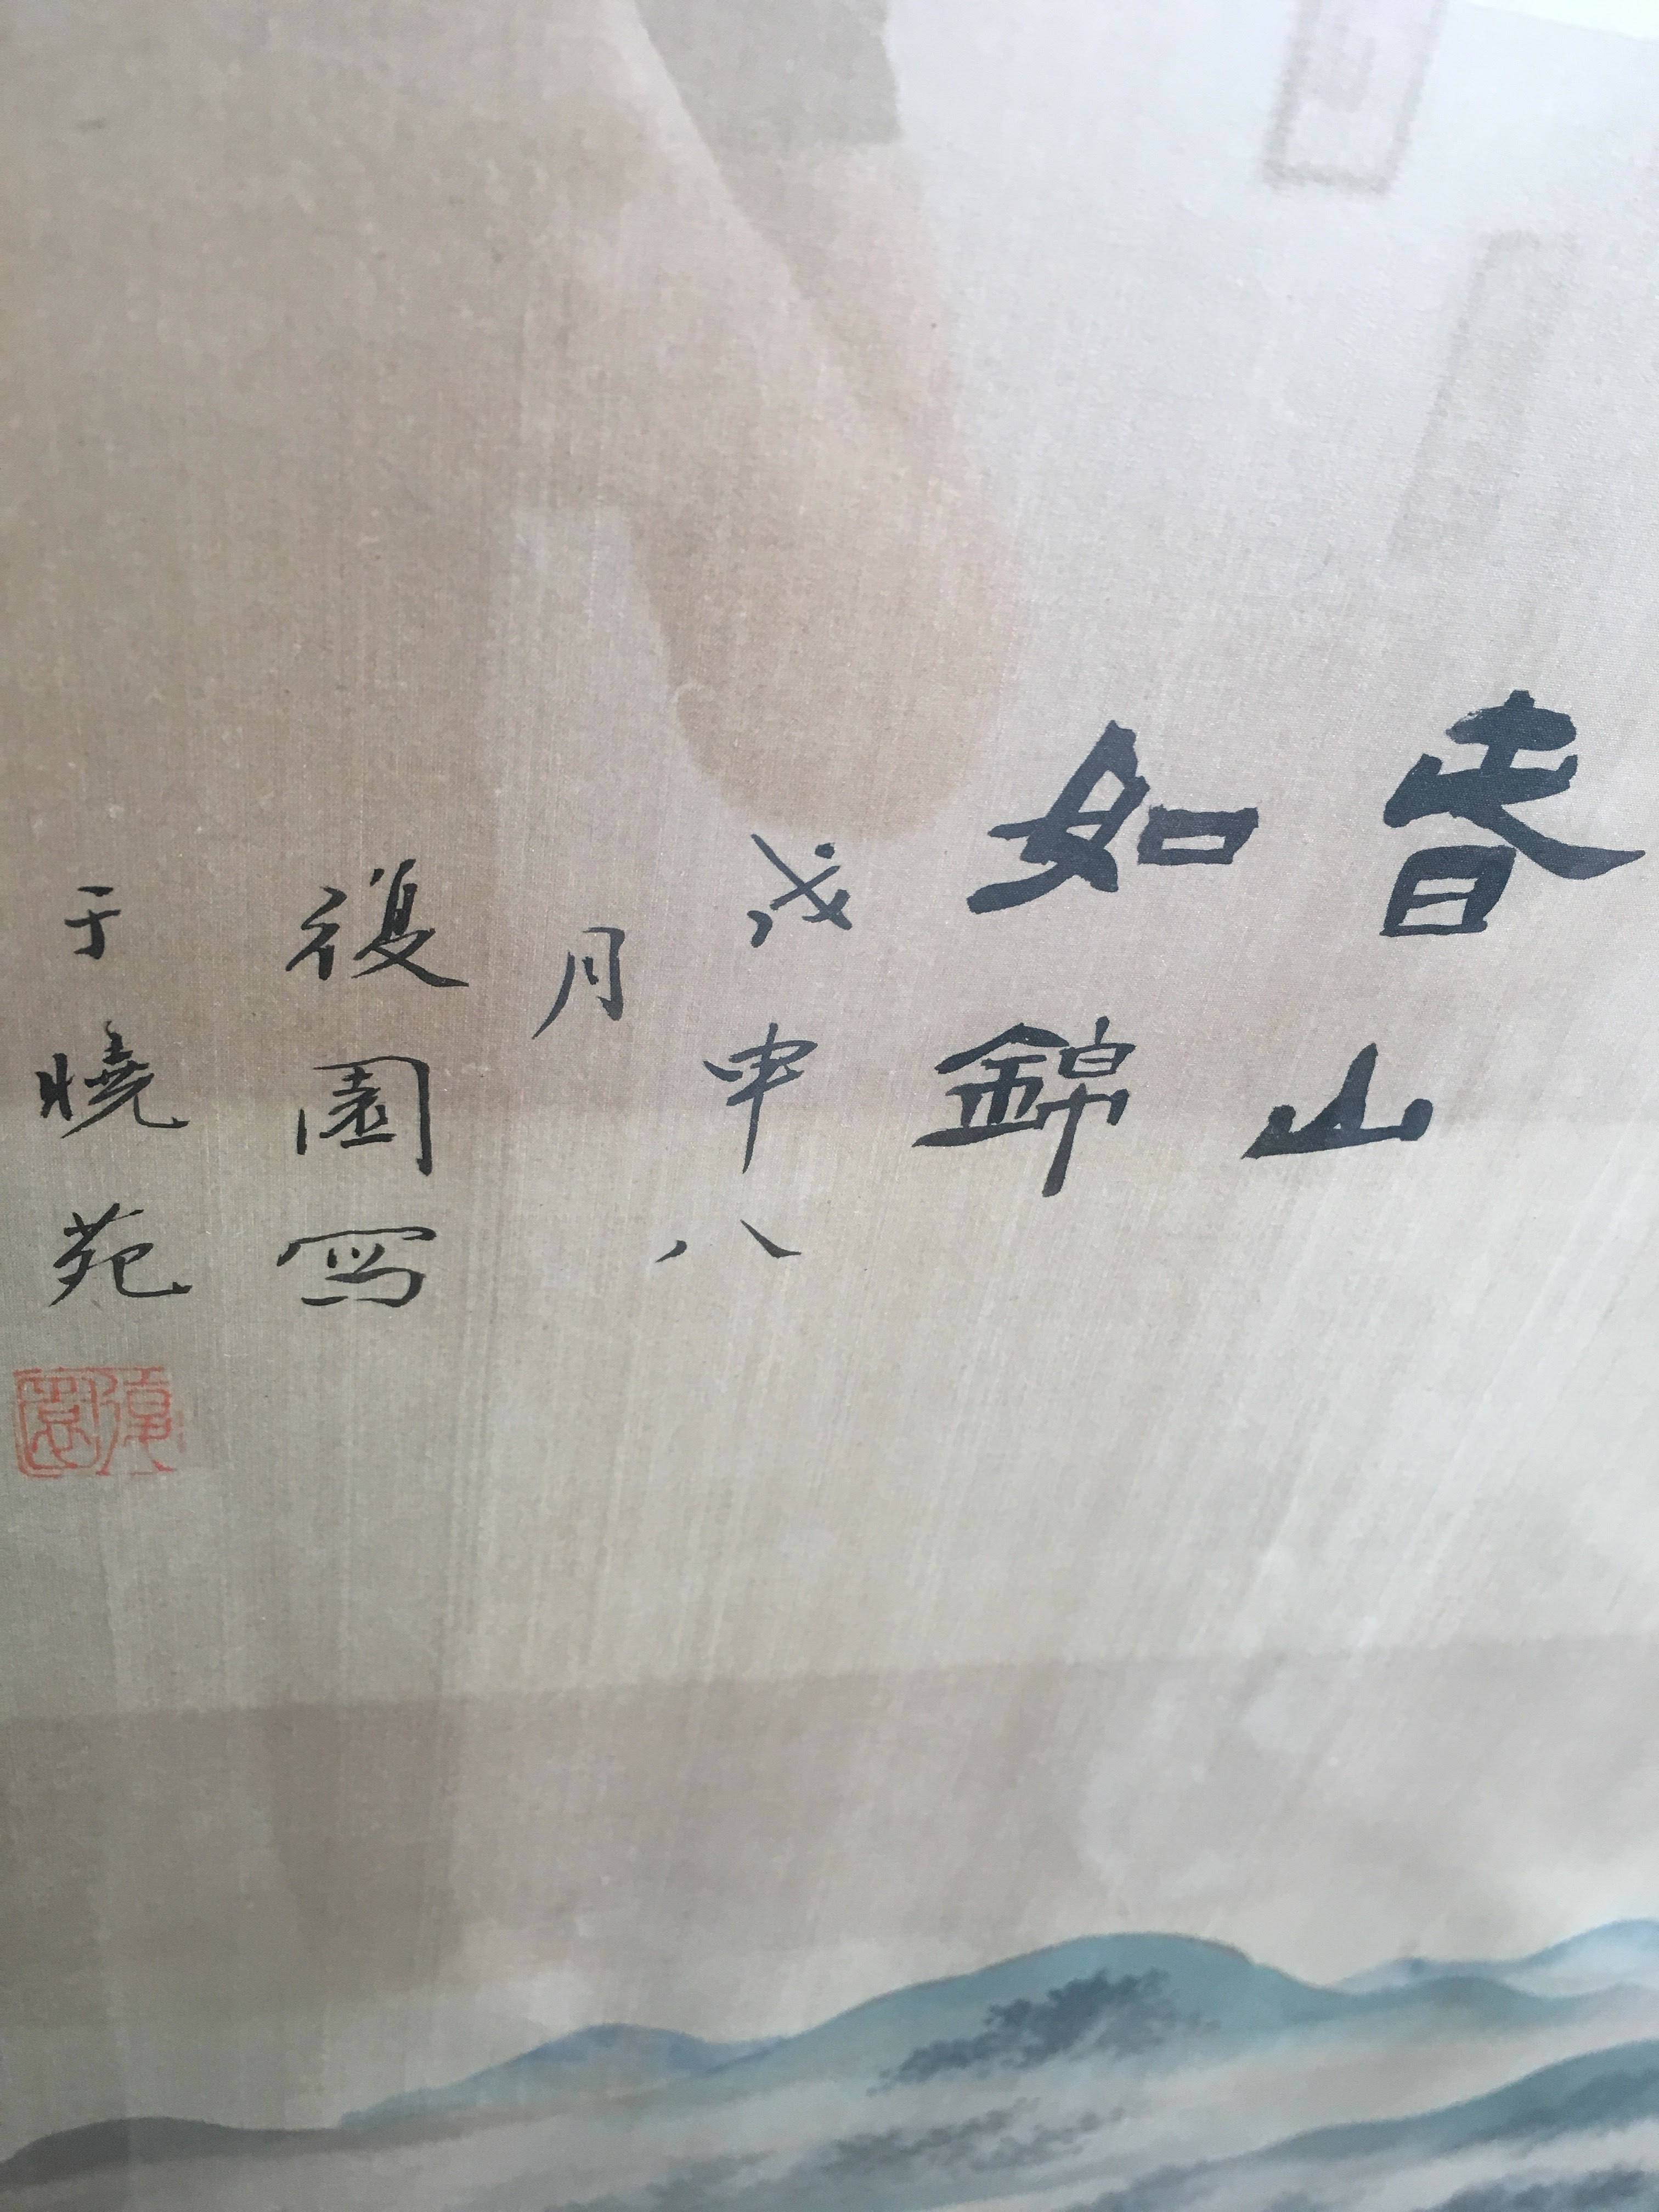 春山
如錦
戊申八
月
復園寫
于曉苑
復園